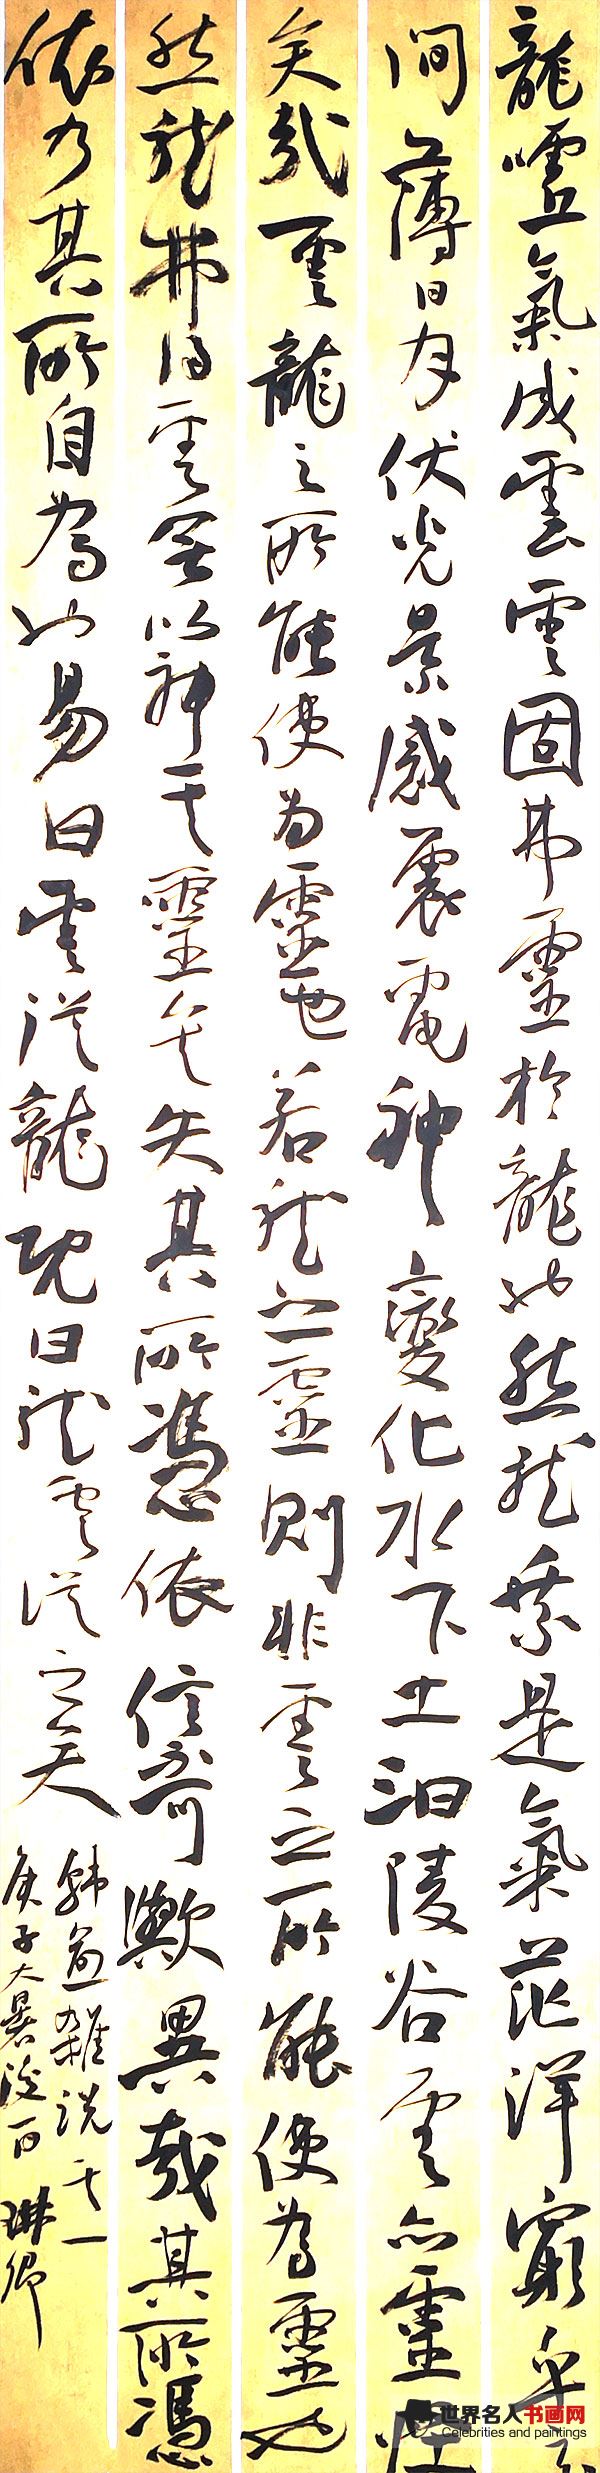 龍噓氣成雲雲固弗靈於龍也然龍乘是氣茫洋窮乎玄
間薄日月伏光景感震電神變化水下土汩陵谷雲亦靈怪
矣哉雲龍之所能使為靈也若龍之靈則非雲之所能使為靈也
然龍弗得雲無以神其靈矣失其所憑依信不可歟異哉其所憑
依乃其所自為也易曰雲從龍既曰龍雲從之矣
韓愈雜說其一
庚子大暑後一日 琳卿
世界名人书画网
Celebrities and paintings